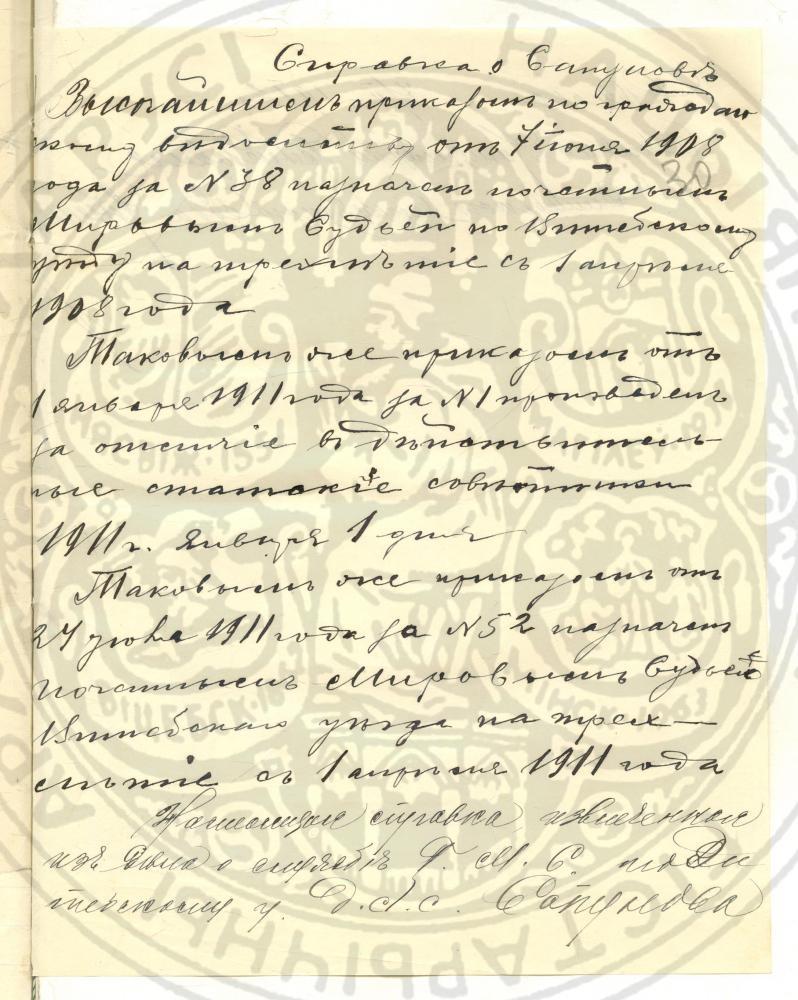 Справка о Сапуновѣ
Высочайшимъ приказомъ по граждан
скому вѣдомству отъ 7 іюня 1908
20
года за N 38 назначенъ почетнымъ
Мировымъ Судьей по Витебскому
уѣзду на трехлѣтіе съ 1 апрѣля
1908 года
Таковымъ же приказомъ отъ
1 января 1911 года за N 1 произведенъ
за отличіе въ дѣйствитель-
ные статскіе совѣтники
1911 г. января 1 дня
Таковымъ же приказомъ отъ
1911 года за N 52 назначенъ
почетнымъ Мировымъ Судьей
Витебскаго уѣзда на трех-
лѣтіе съ 1 апрѣля 1911 года
Настоящая справка извлечена
изъ дѣла о службѣ П. М. С. по Ви
тебскому у. Д. С. С. Сапунова